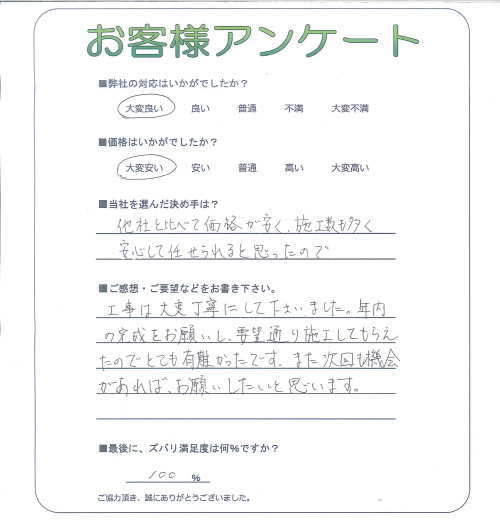 お客様アンケート
■弊社の対応はいかがでしたか？
大変良い 良い 普通 不満 大変不満
■価格はいかがでしたか？
大変安い 安い 普通 高い 大変高い
■当社を選んだ決め手は？
他社と比べて価格が安く、施工数も多く
安心して任せられると思ったので
■ご感想・ご要望などをお書き下さい。
工事は大変丁寧にして下さいました。年内
の完成をお願いし、要望通り施工してもらえ
たのでとても有難かったです。また次回も機会
があれば、お願いしたいと思います。
■最後に、ズバリ満足度は何%ですか？
100 %
ご協力頂き、誠にありがとうございました。